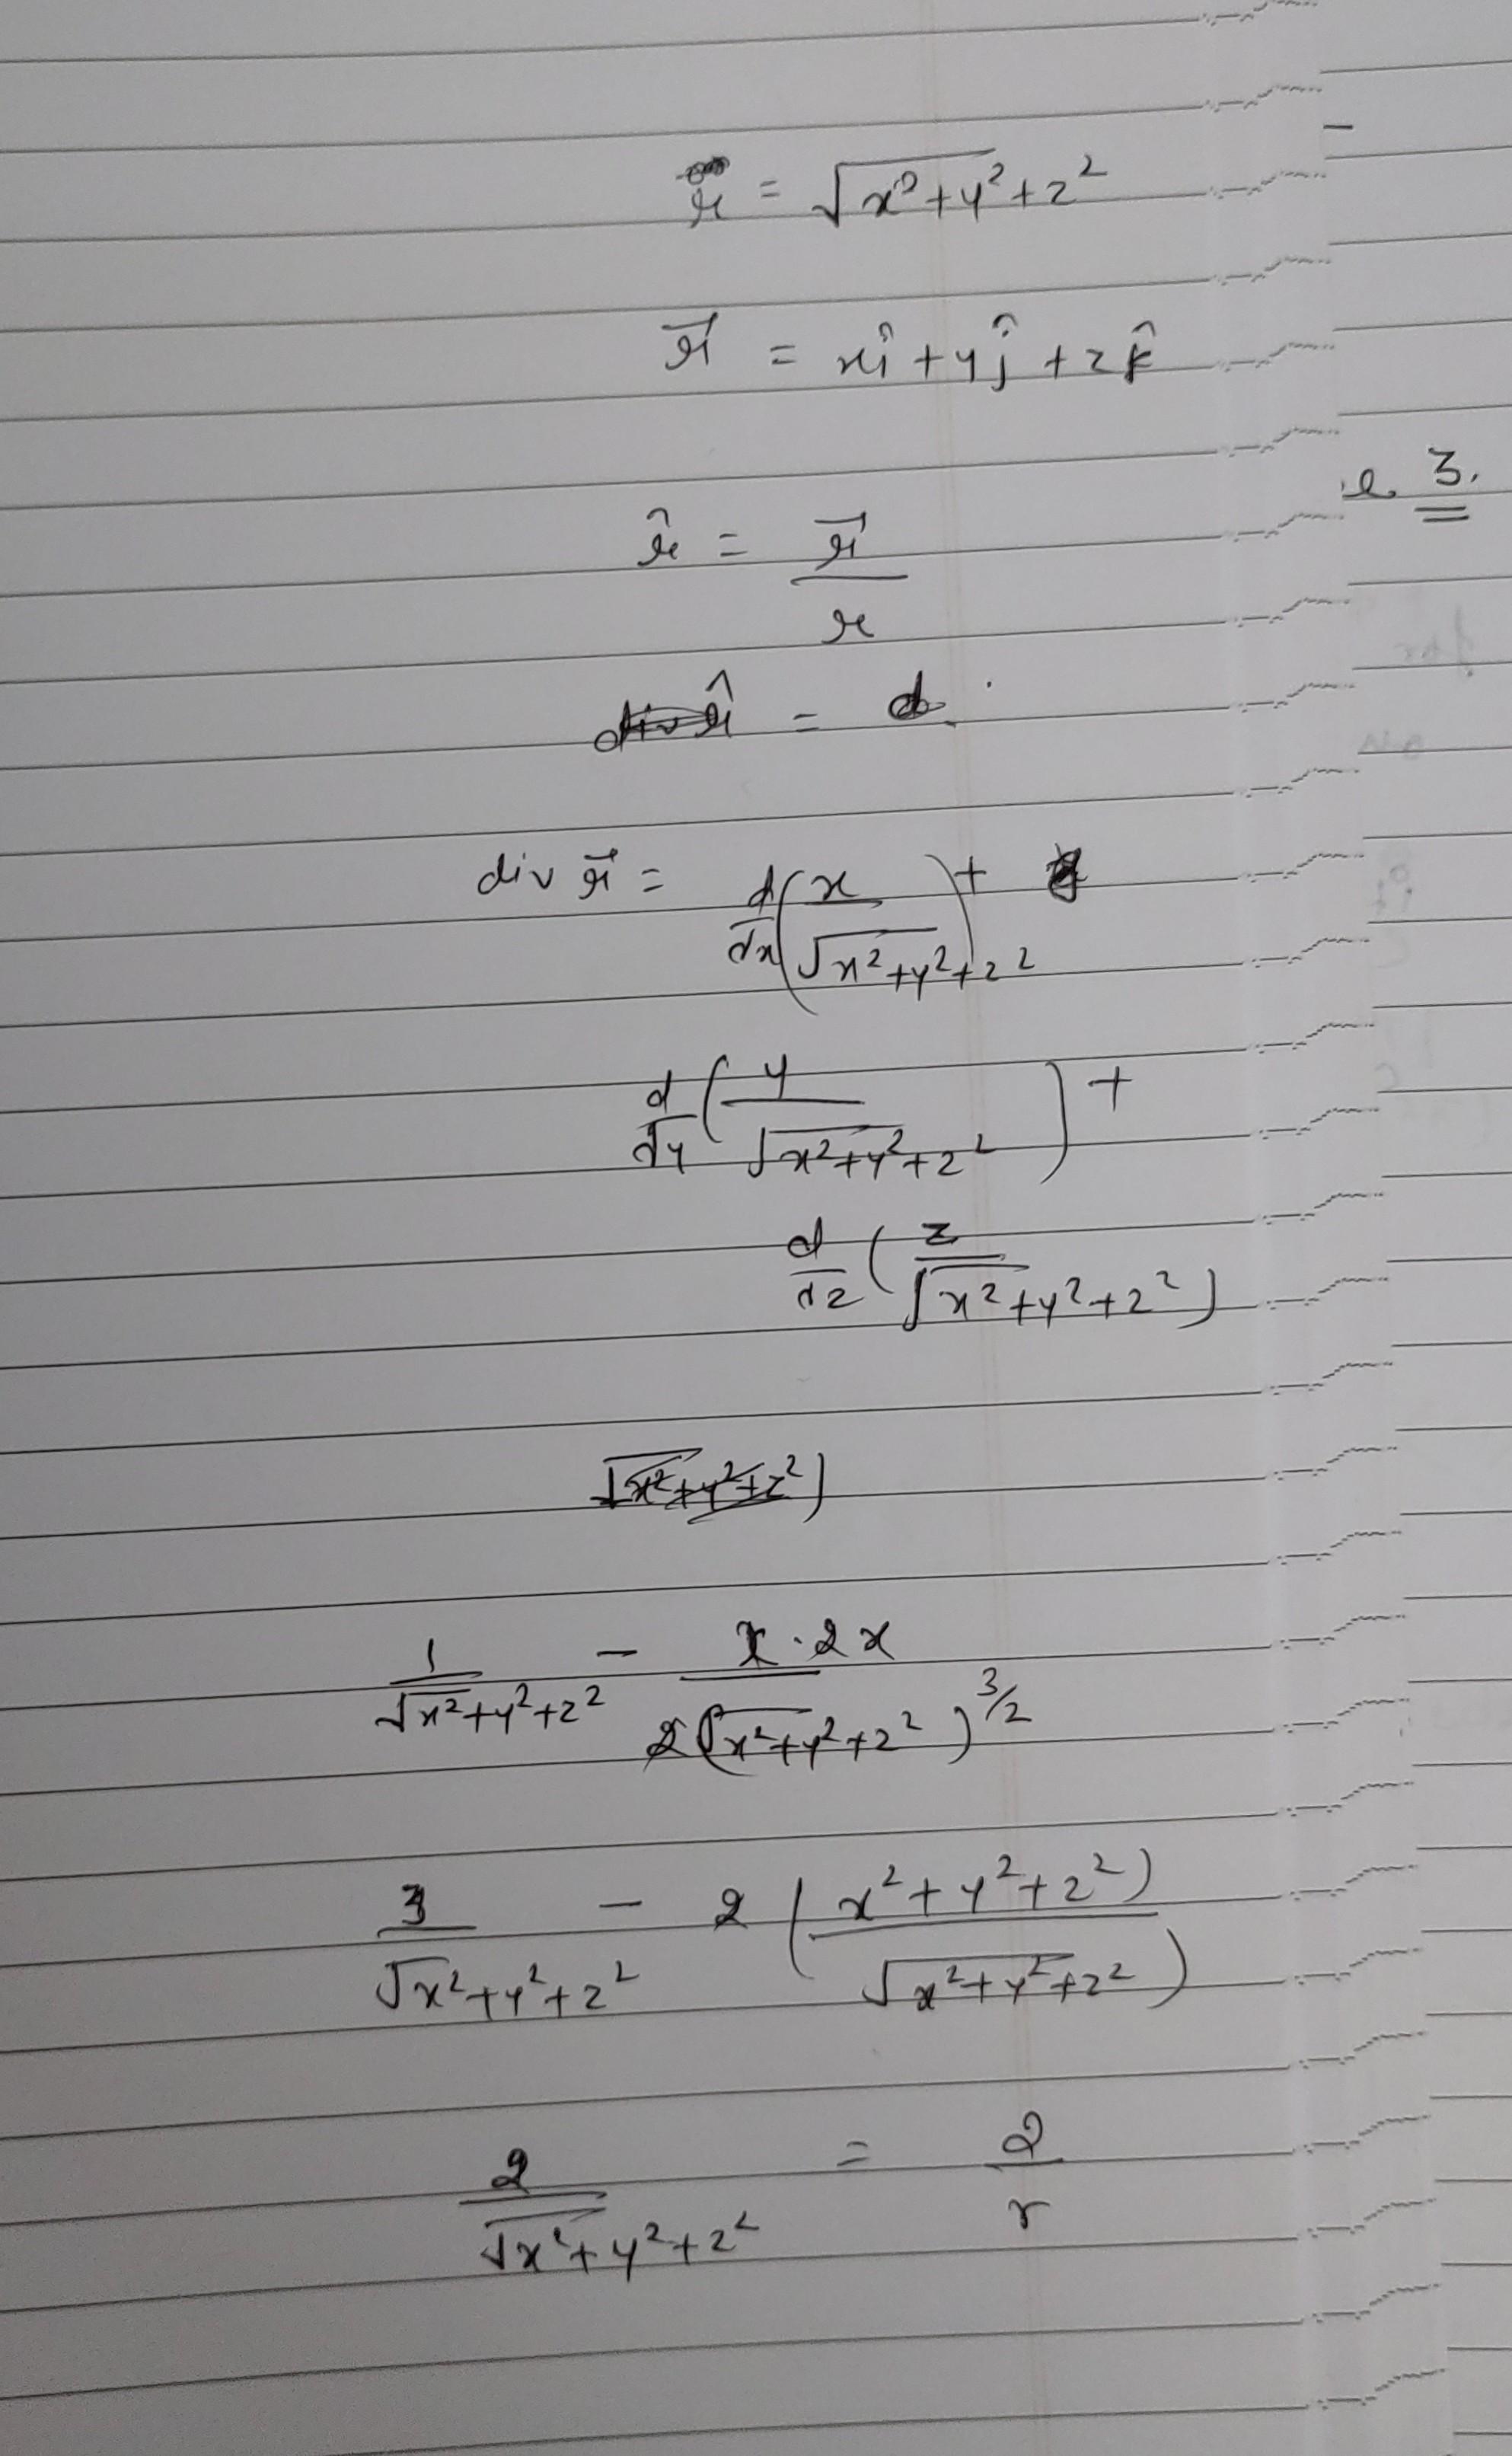 r = √x²+y²+z²
r⃗ = xî+yĵ+zk̂
3.
r̂ = r⃗/r
div r̂ = d
div r⃗ = d/dx(x/√x²+y²+z²)+
d/dy(y/√x²+y²+z²)+
d/dz(z/√x²+y²+z²)
√x²+y²+z²)
1/√x²+y²+z² - x·2x/2(√x²+y²+z²)^3/2
3/√x²+y²+z² - 2(x²+y²+z²)/√x²+y²+z²)
2/√x²+y²+z² = 2/r